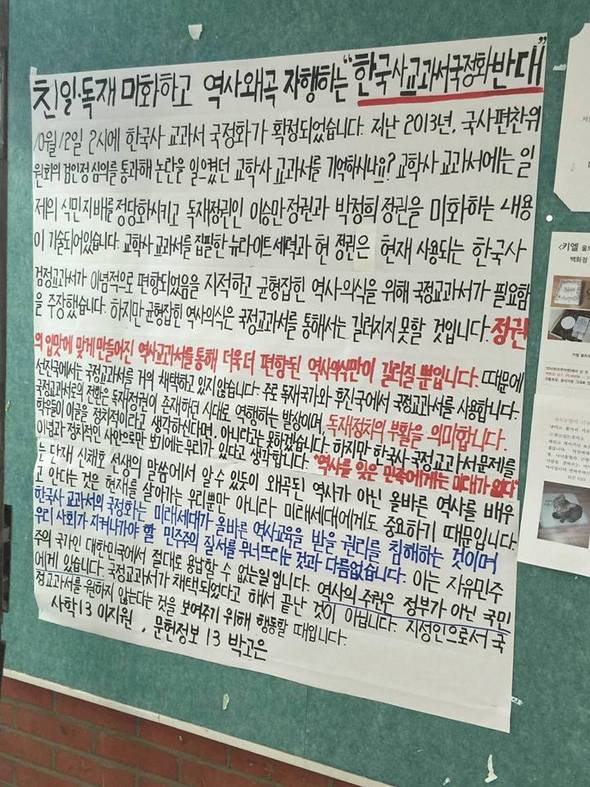 친일·독재 미화하고 역사왜곡 자행하는 "한국사교과서국정화반대"
10월12일 2시에 한국사 교과서 국정화가 확정되었습니다. 지난 2013년, 국사편찬위
원회의 검인정 심의를 통과해 논란을 일으켰던 교학사 교과서를 기억하시나요? 교학사 교과서에는 일
제의 식민지배를 정당화시키고 독재정권인 이승만정권과 박정희 정권을 미화하는 내용
이 기술되어있습니다. 교학사 교과서를 집필한 뉴라이트세력과 현 정권은 현재 사용되는 한국사
검정교과서가 이념적으로 편향되었음을 지적하고 균형잡힌 역사의식을 위해 국정교과서가 필요함
을 주장했습니다. 하지만 균형잡힌 역사의식은 국정교과서를 통해서는 길러지지 못할 것입니다. 정권
의 입맛에 맞게 만들어진 역사교과서를 통해 더욱더 편향된 역사의식만이 길러질 뿐입니다. 때문에
선진국에서는 국정교과서를 거의 채택하고 있지 않습니다. 주로 독재국가와 후진국에서 국정교과서를 사용합니다.
국정교과서로의 전환은 독재정권이 존재하던 시대로 역행하는 발상이며, 독재정치의 부활을 의미합니다.
학우들이 이글을 정치적이라고 생각하신다면, 아니라고는 못하겠습니다. 하지만 한국사 국정교과서문제를
이념과 정치적인 사안으로만 보기에는 무리가 있다고 생각합니다. "역사를 잊은 민족에게는 미래가 없다"
는 단재 신채호 선생의 말씀에서 알 수 있듯이 왜곡된 역사가 아닌 올바른 역사를 배우
고 안다는 것은 현재를 살아가는 우리뿐만 아니라 미래세대에게도 중요하기 때문입니다.
한국사 교과서의 국정화는 미래세대가 올바른 역사교육을 받을 권리를 침해하는 것이며
우리 사회가 지켜나가야 할 민주주의 질서를 무너뜨리는 것과 다름없습니다. 이는 자유민주
주의 국가인 대한민국에서 절대로 용납할 수 없는일입니다. 역사의 주권은 정부가 아닌 국민
에게 있습니다. 국정교과서가 채택되었다고 해서 끝난 것이 아닙니다. 지성인으로서 국
정교과서를 원하지 않는다는 것을 보여주기 위해 행동할 때입니다.
사학13 이지원, 문헌정보 13 박고은
<키엘
백화점